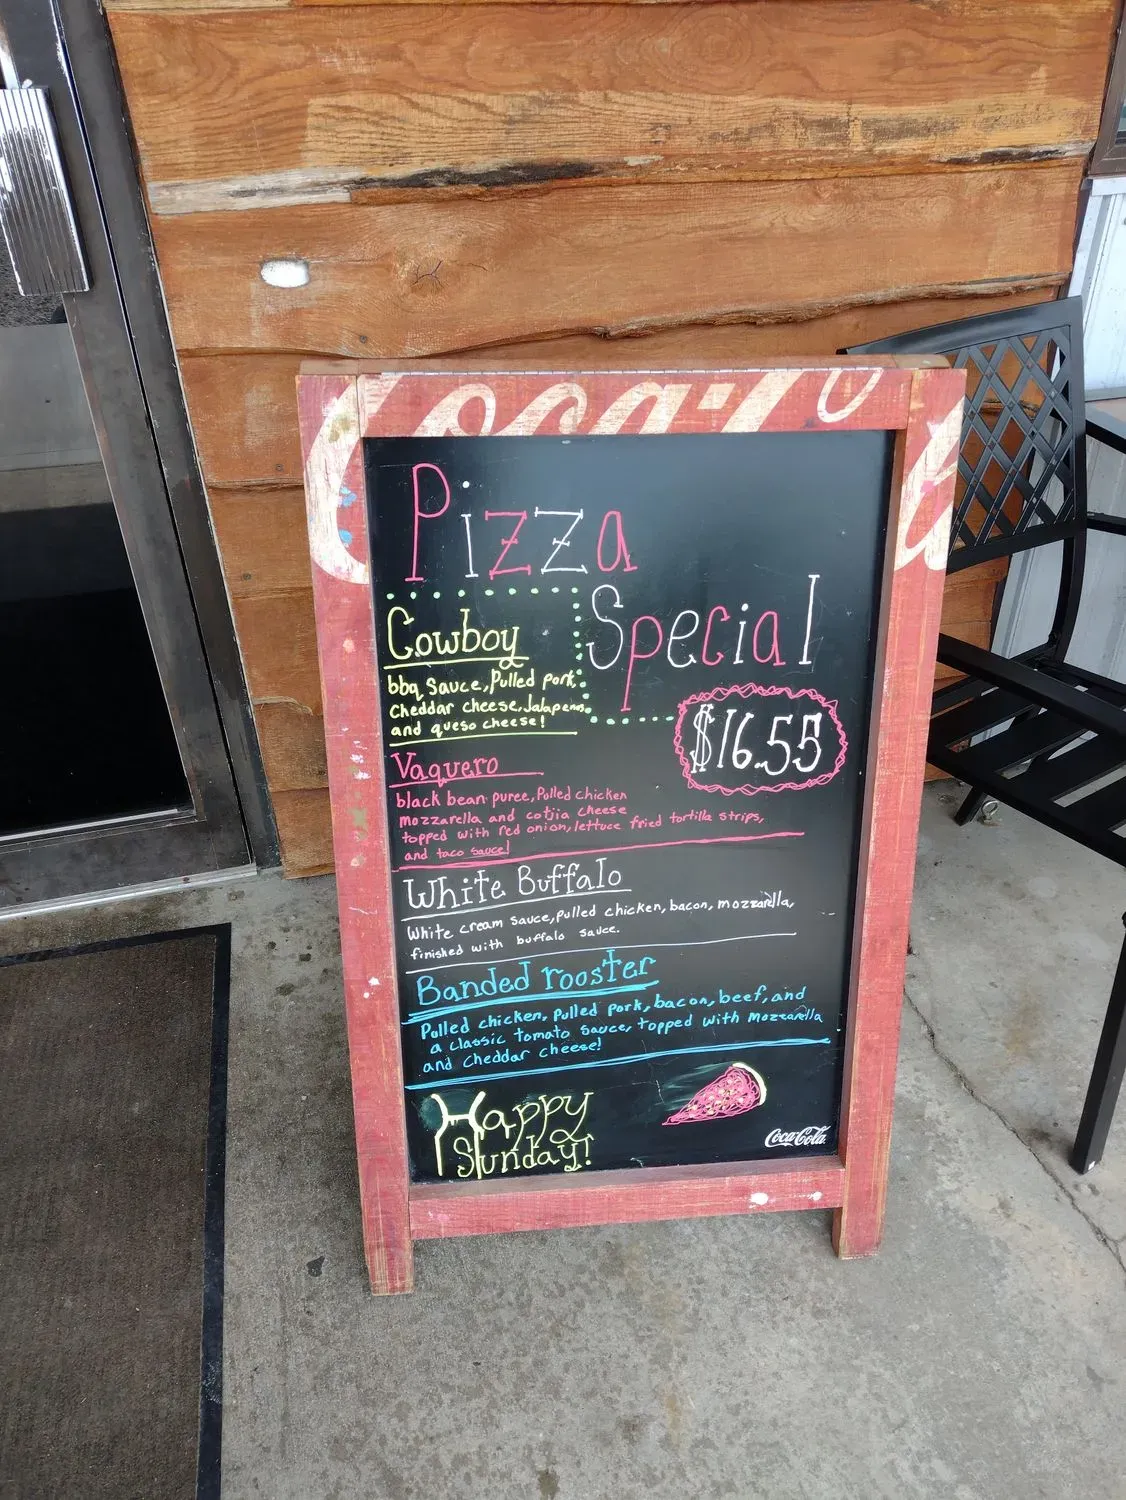 Coca-Co
Pizza
Special
$16.55
Cowboy
bbq sauce, Pulled pork,
cheddar cheese, Jalapenos,
and queso cheese!
Vaquero
black bean puree, Pulled chicken
mozzarella and cotjia cheese
topped with red onion, lettuce fried tortilla strips,
and taco sauce!
White Buffalo
White cream sauce, pulled chicken, bacon, mozzarella,
finished with buffalo sauce.
Banded rooster
Pulled chicken, Pulled pork, bacon, beef, and
a classic tomato sauce, topped with mozzarella
and cheddar cheese!
Happy
Sunday!
Coca-Cola